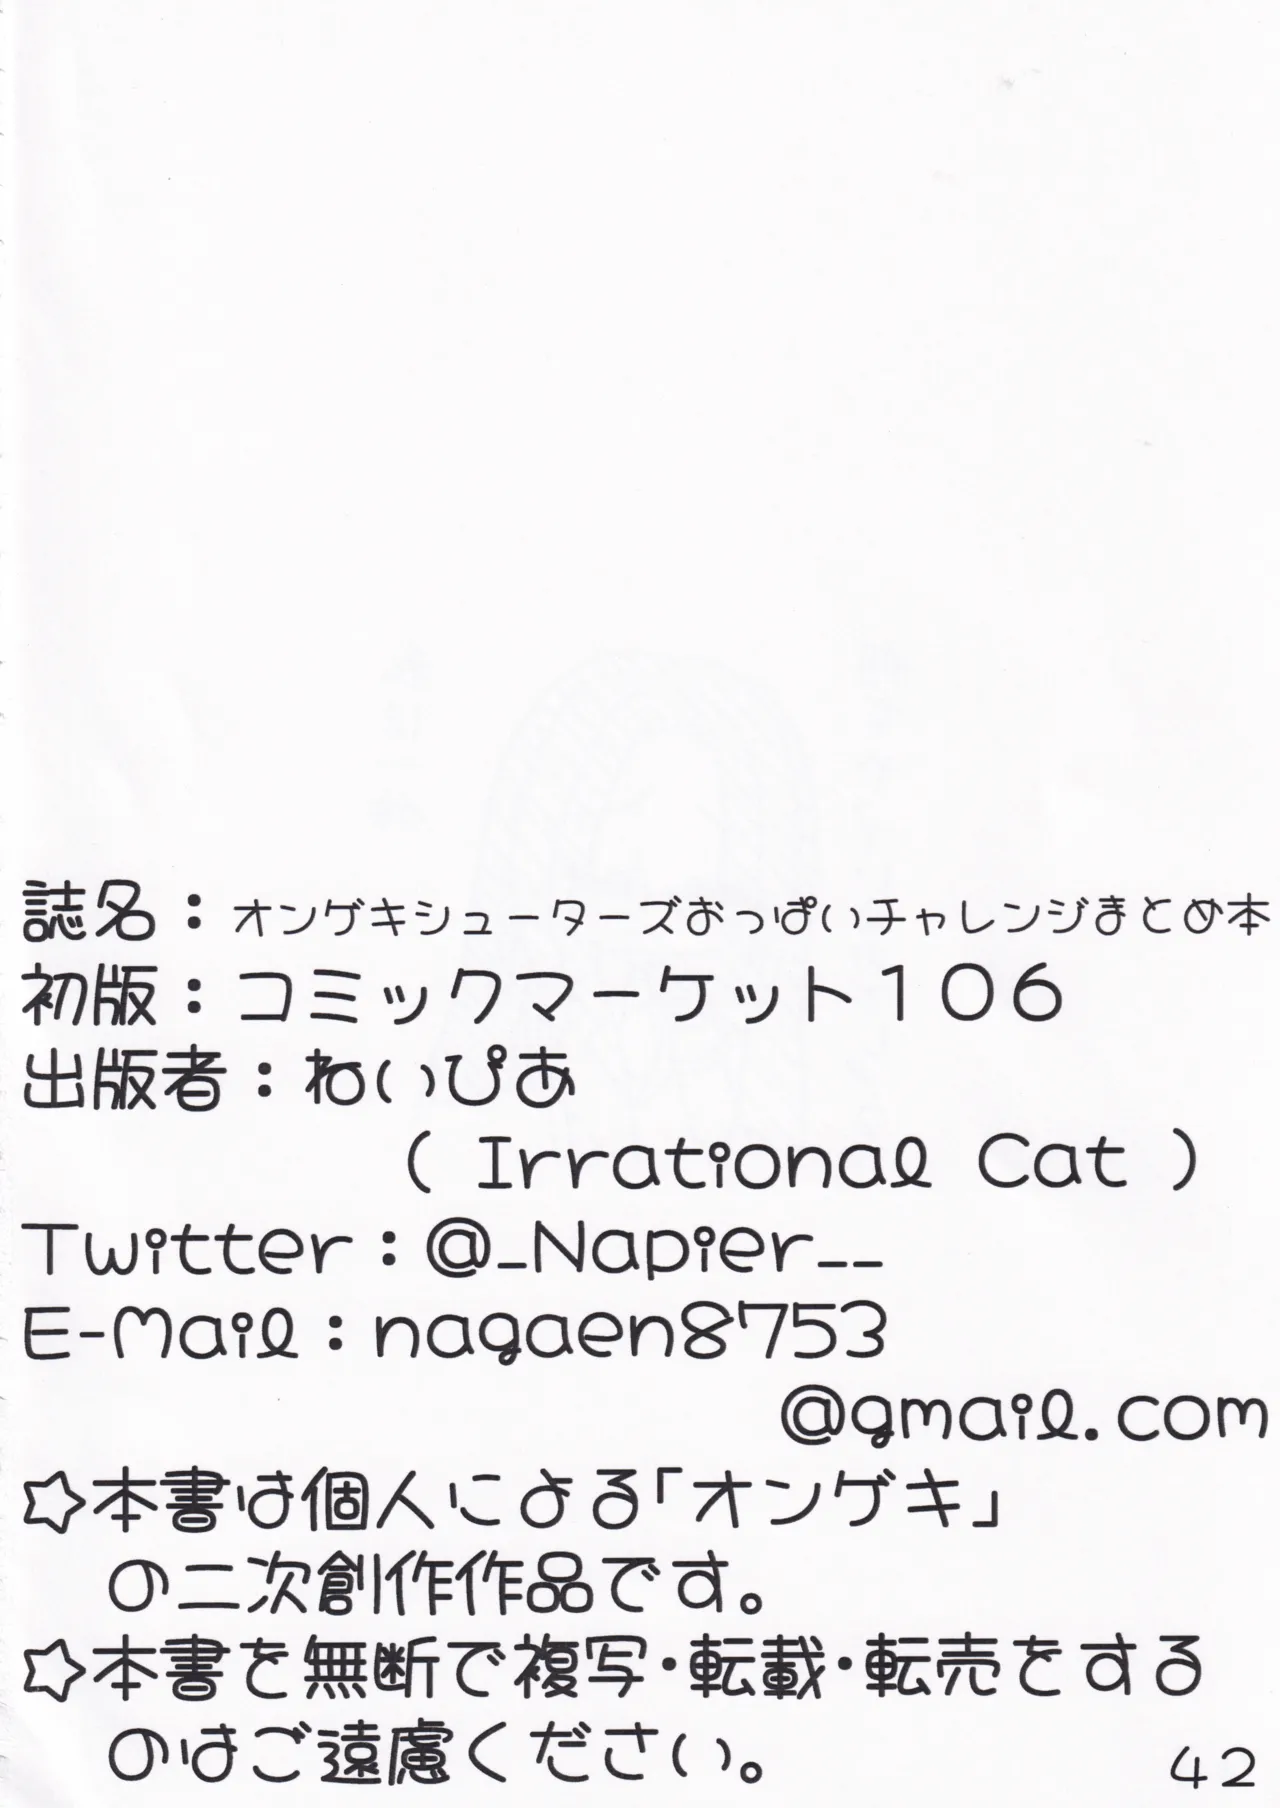 誌名：オンゲキシューターズおっぱいチャレンジまとめ本
初版：コミックマーケット１０６
出版者：ねいぴあ
（ Irrational Cat ）
Twitter：@_Napier__
E-Mail：nagaen8753
@gmail.com
☆本書は個人による「オンゲキ」
の二次創作作品です。
☆本書を無断で複写・転載・転売をする
のはご遠慮ください。
42